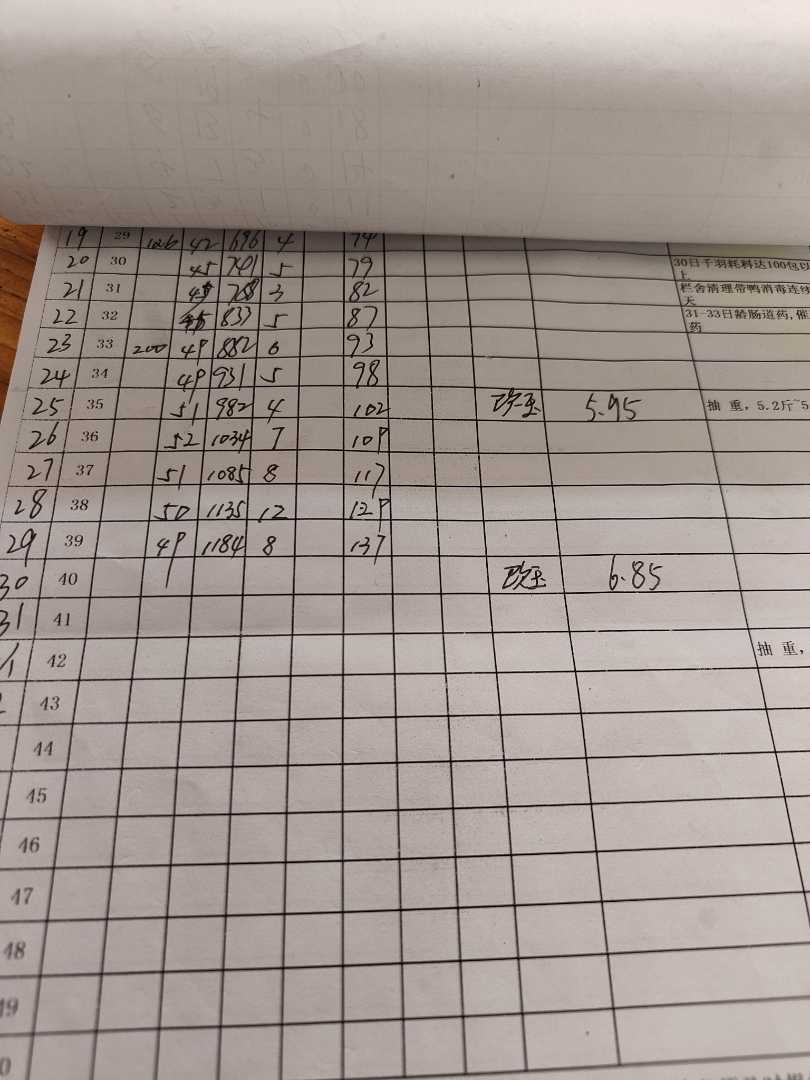 19 29 126 42 696 4 74
20 30 45 741 5 79 30日千羽耗料达100包以上
21 31 3 82 栏舍清理带鸭消毒连续 天
22 32 833 5 87 31-33日龄肠道药,催 药
23 33 200 49 882 6 93
24 34 49 931 5 98
25 35 51 982 4 102 5.95 抽 重,5.2斤~5
26 36 52 1034 7 109
27 37 51 1085 8 117
28 38 50 1135 12 129
29 39 49 1184 8 137
30 40 6.85
31 41
1 42 抽 重,
43
44
45
46
47
48
49
0